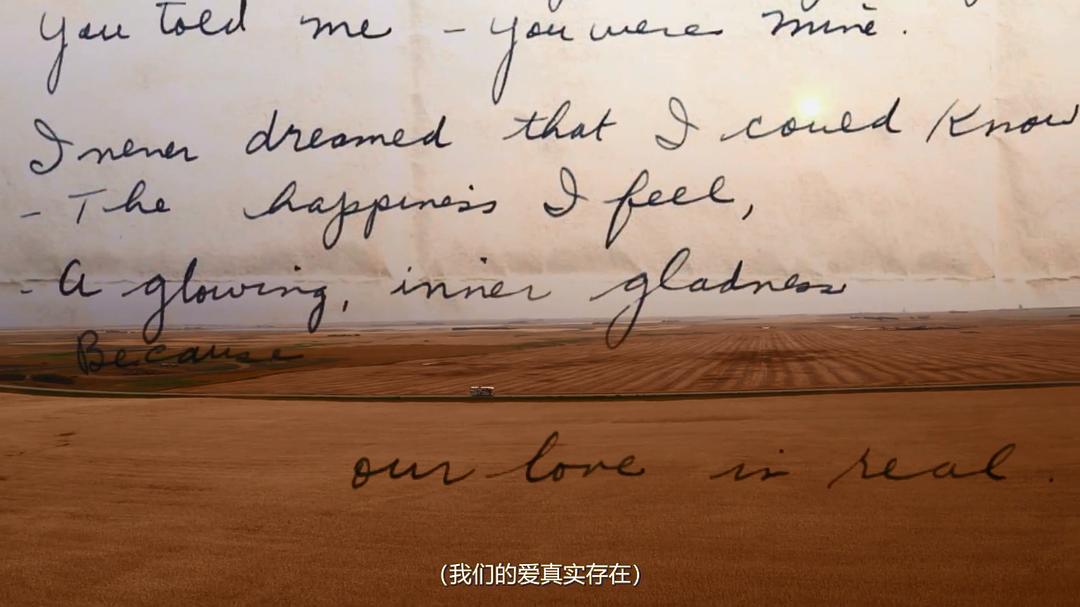 You told me - you were mine.
I never dreamed that I could know
- The happiness I feel,
- A glowing, inner gladness
Because
our love is real.
(我们的爱真实存在)